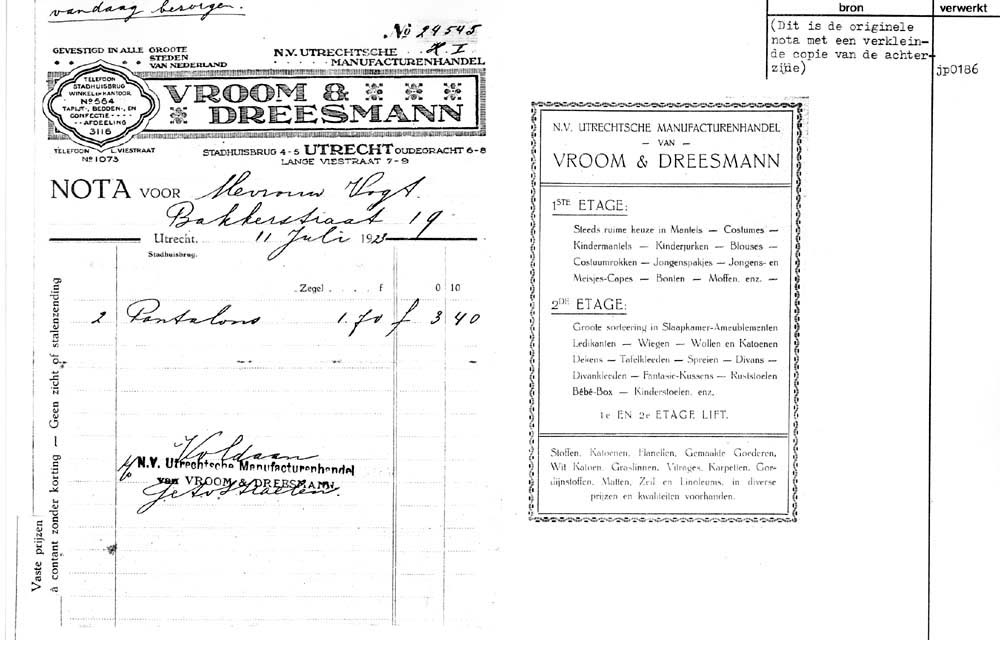 vandaag bezorgen.
No 24545
H. I
GEVESTIGD IN ALLE GROOTE
STEDEN
VAN NEDERLAND
N.V. UTRECHTSCHE
MANUFACTURENHANDEL
TELEFOON
STADHUISBRUG
WINKEL EN KANTOOR
No 564
TAPIJT-, BEDDEN-, EN
CONFECTIE-
AFDEELING
3116
VROOM &
DREESMANN
TELEFOON L. VIESTRAAT
No 1073
STADHUISBRUG 4-5 UTRECHT OUDEGRACHT 6-8
LANGE VIESTRAAT 7-9
NOTA VOOR Mevrouw Vogt.
Bakkerstraat 19
Utrecht, 11 Juli 1923
Stadhuisbrug.
Zegel . . . . f 0 10
2 Pantalons 1.70 f 3 40
Voldaan
N.V. Utrechtsche Manufacturenhandel
van VROOM & DREESMANN.
Vaste prijzen
à contant zonder korting — Geen zicht of stalenzending
N.V. UTRECHTSCHE MANUFACTURENHANDEL
— VAN —
VROOM & DREESMANN
1STE ETAGE:
Steeds ruime keuze in Mantels — Costumes —
Kindermantels — Kinderjurken — Blouses —
Costuumrokken — Jongenspakjes — Jongens- en
Meisjes-Capes — Bonten — Moffen, enz. —
2DE ETAGE:
Groote sorteering in Slaapkamer-Ameublementen
Ledikanten — Wiegen — Wollen en Katoenen
Dekens — Tafelkleeden — Spreien — Divans —
Divankleeden — Fantasie-Kussens — Ruststoelen
Bébé-Box — Kinderstoelen, enz.
1e EN 2e ETAGE LIFT.
Stoffen, Katoenen, Flanellen, Gemaakte Goederen,
Wit Katoen, Graslinnen, Vitrages, Karpetten, Gor-
dijnstoffen, Matten, Zeil en Linoleums, in diverse
prijzen en kwaliteiten voorhanden.
bron
verwerkt
(Dit is de originele
nota met een verklein-
de copie van de achter-
zijde)
jp0186